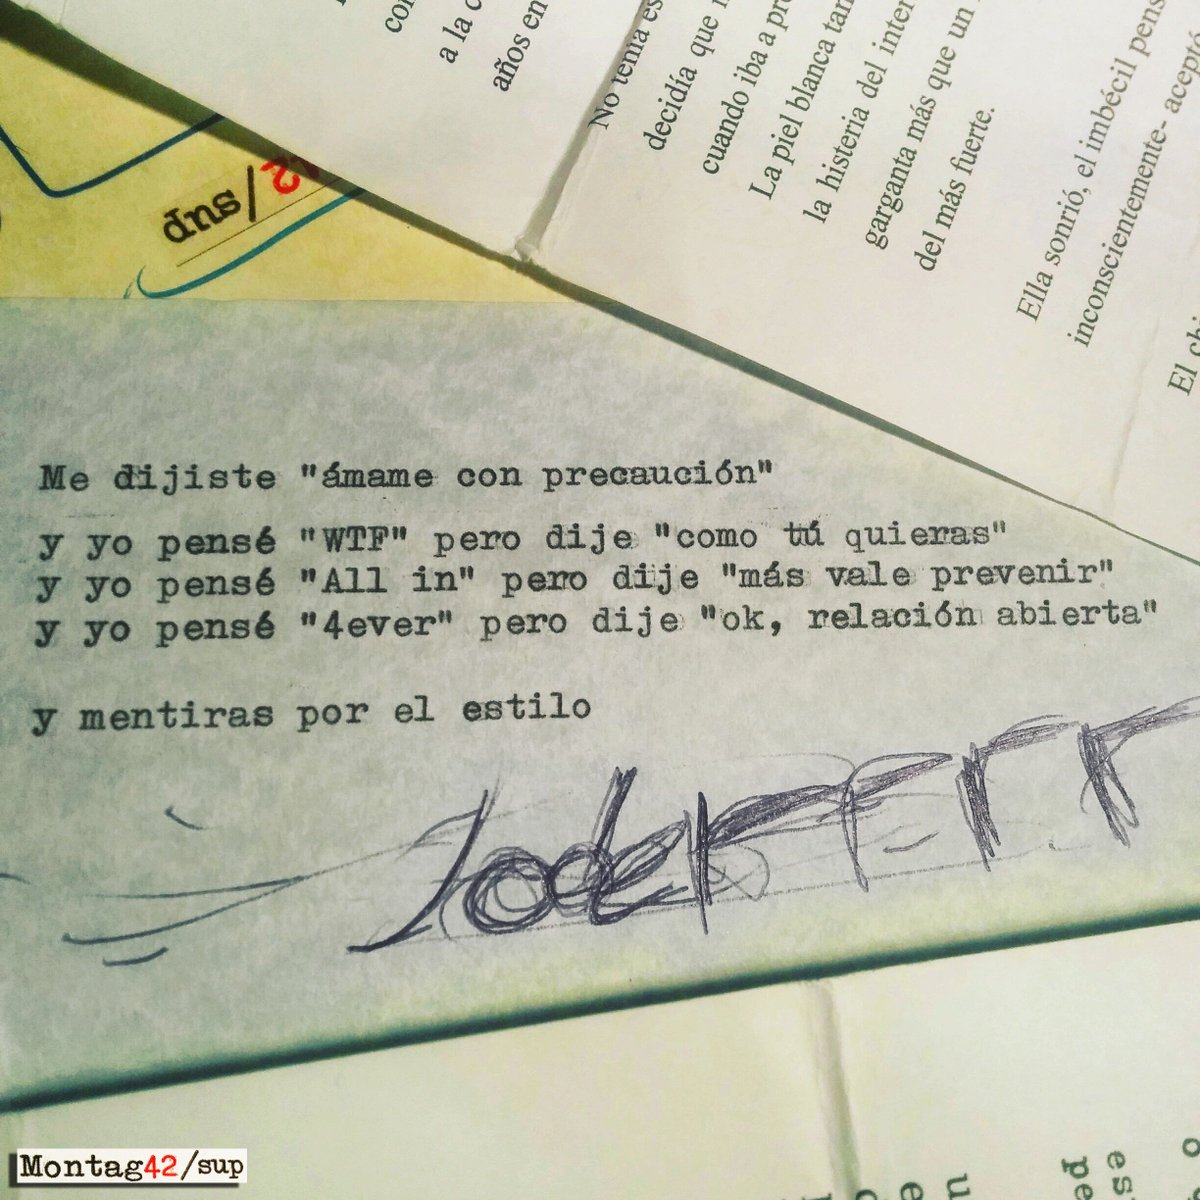 a la c
años en
No tenía es
decidía que
cuando iba a pr
La piel blanca tan
la histeria del inter
garganta más que un
del más fuerte.
Ella sonrió, el imbécil pens
inconscientemente- aceptó
El ch
42/sup
Me dijiste "ámame con precaución"
y yo pensé "WTF" pero dije "como tú quieras"
y yo pensé "All in" pero dije "más vale prevenir"
y yo pensé "4ever" pero dije "ok, relación abierta"
y mentiras por el estilo
Joderrrr
Montag42/sup
es
pe